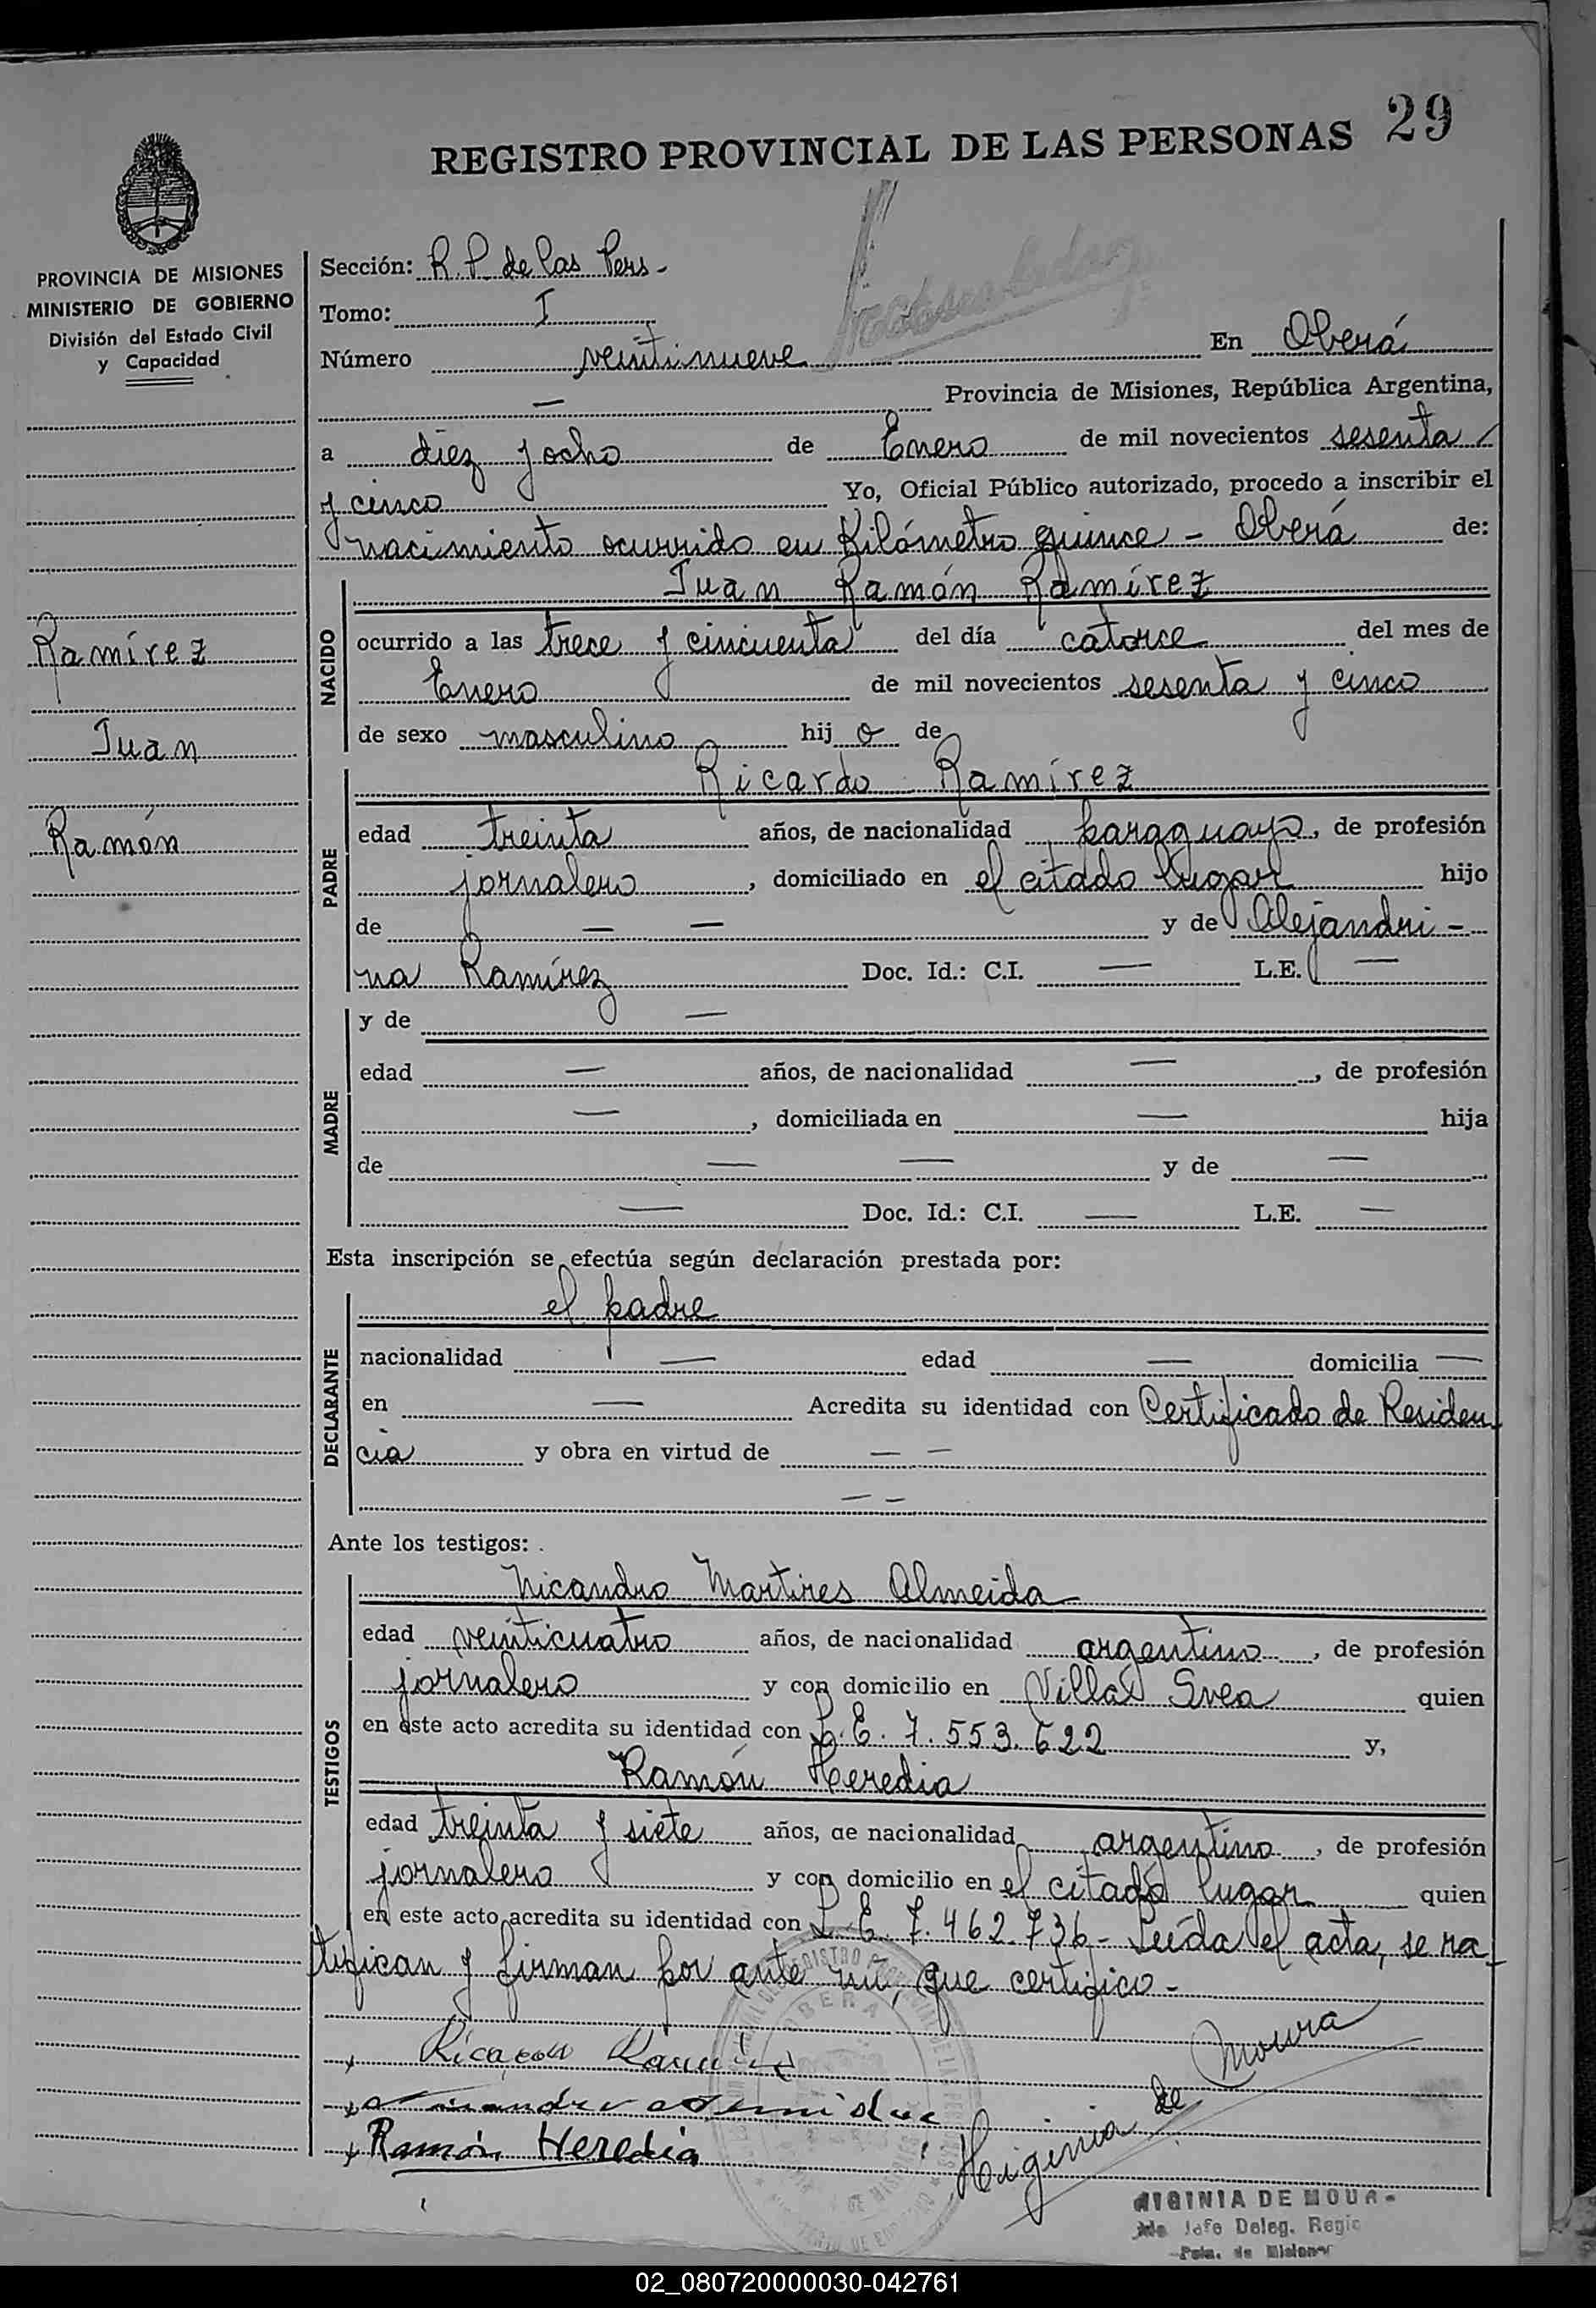 29
REGISTRO PROVINCIAL DE LAS PERSONAS
PROVINCIA DE MISIONES
MINISTERIO DE GOBIERNO
División del Estado Civil
y Capacidad
Ramírez
Juan
Ramón
Sección: R. P. de las Pers-
Tomo: I
Número veintinueve En Oberá
— Provincia de Misiones, República Argentina,
a diez y ocho de Enero de mil novecientos sesenta
y cinco Yo, Oficial Público autorizado, procedo a inscribir el
nacimiento ocurrido en Kilómetro quince - Oberá de:
NACIDO
Juan Ramón Ramírez
ocurrido a las trece y cincuenta del día catorce del mes de
Enero de mil novecientos sesenta y cinco
de sexo masculino hij o de
PADRE
Ricardo Ramírez
edad treinta años, de nacionalidad paraguayo, de profesión
jornalero, domiciliado en el citado lugar hijo
de — — y de Alejandri-
na Ramírez Doc. Id.: C.I. — L.E. —
MADRE
y de —
edad — años, de nacionalidad —, de profesión
—, domiciliada en — hija
de — — y de —
— Doc. Id.: C.I. — L.E. —
Esta inscripción se efectúa según declaración prestada por:
DECLARANTE
el padre
nacionalidad — edad — domicilia —
en — Acredita su identidad con Certificado de Residen
cia y obra en virtud de — —
— —
Ante los testigos:
TESTIGOS
Nicandro Martires Almeida
edad veinticuatro años, de nacionalidad argentino, de profesión
jornalero y con domicilio en Villa Svea quien
en este acto acredita su identidad con L. E. 7.553.622 y,
Ramón Heredia
edad treinta y siete años, de nacionalidad argentino, de profesión
jornalero y con domicilio en el citado lugar quien
en este acto acredita su identidad con L. E. 7.462.736- Leída el acta, se ra
tifican y firman por ante mí, que certifico-
Ricardo Ramírez
Ramón Heredia
Higinia de Moura
HIGINIA DE MOURA
Jefe Deleg.
Pcia. de Misiones
02_080720000030-042761